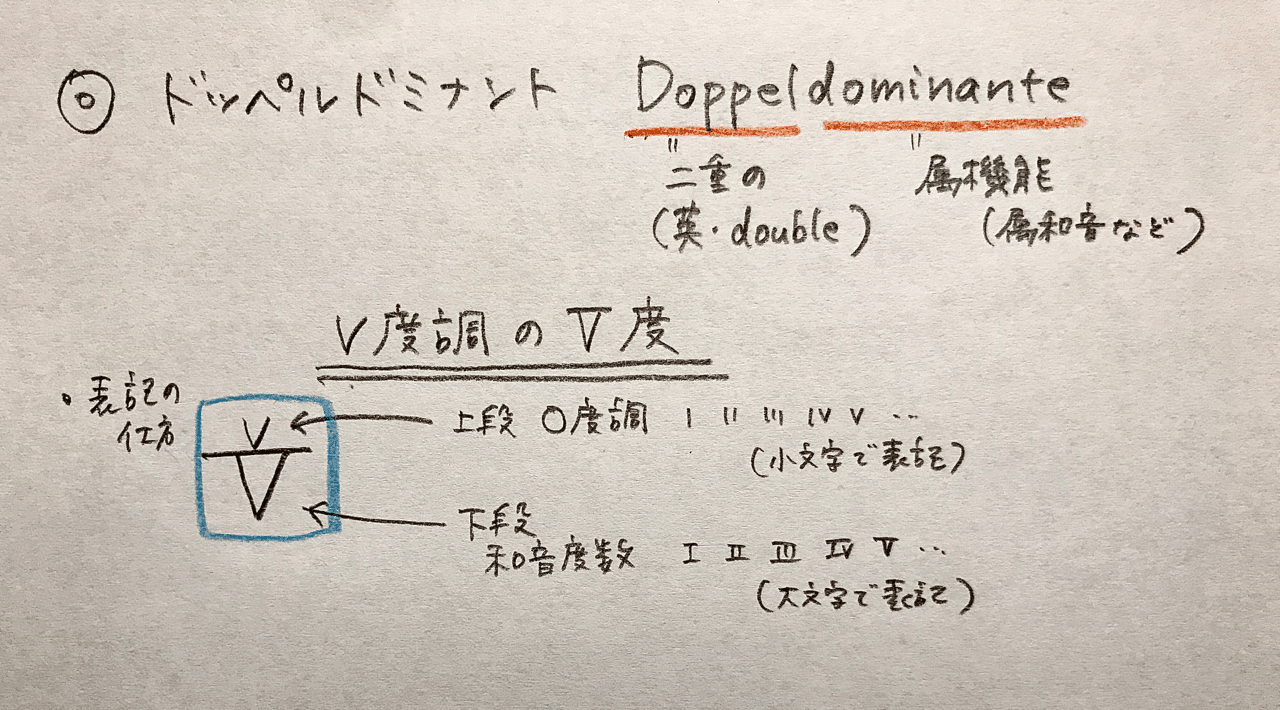 ◎ ドッペルドミナント Doppeldominante
〃二重の 〃属機能
(英・double) (属和音など)
v度調のV度
・表記の
仕方
v
V
上段 ○度調 i ii iii iv v …
(小文字で表記)
下段
和音度数 I II III IV V …
(大文字で表記)